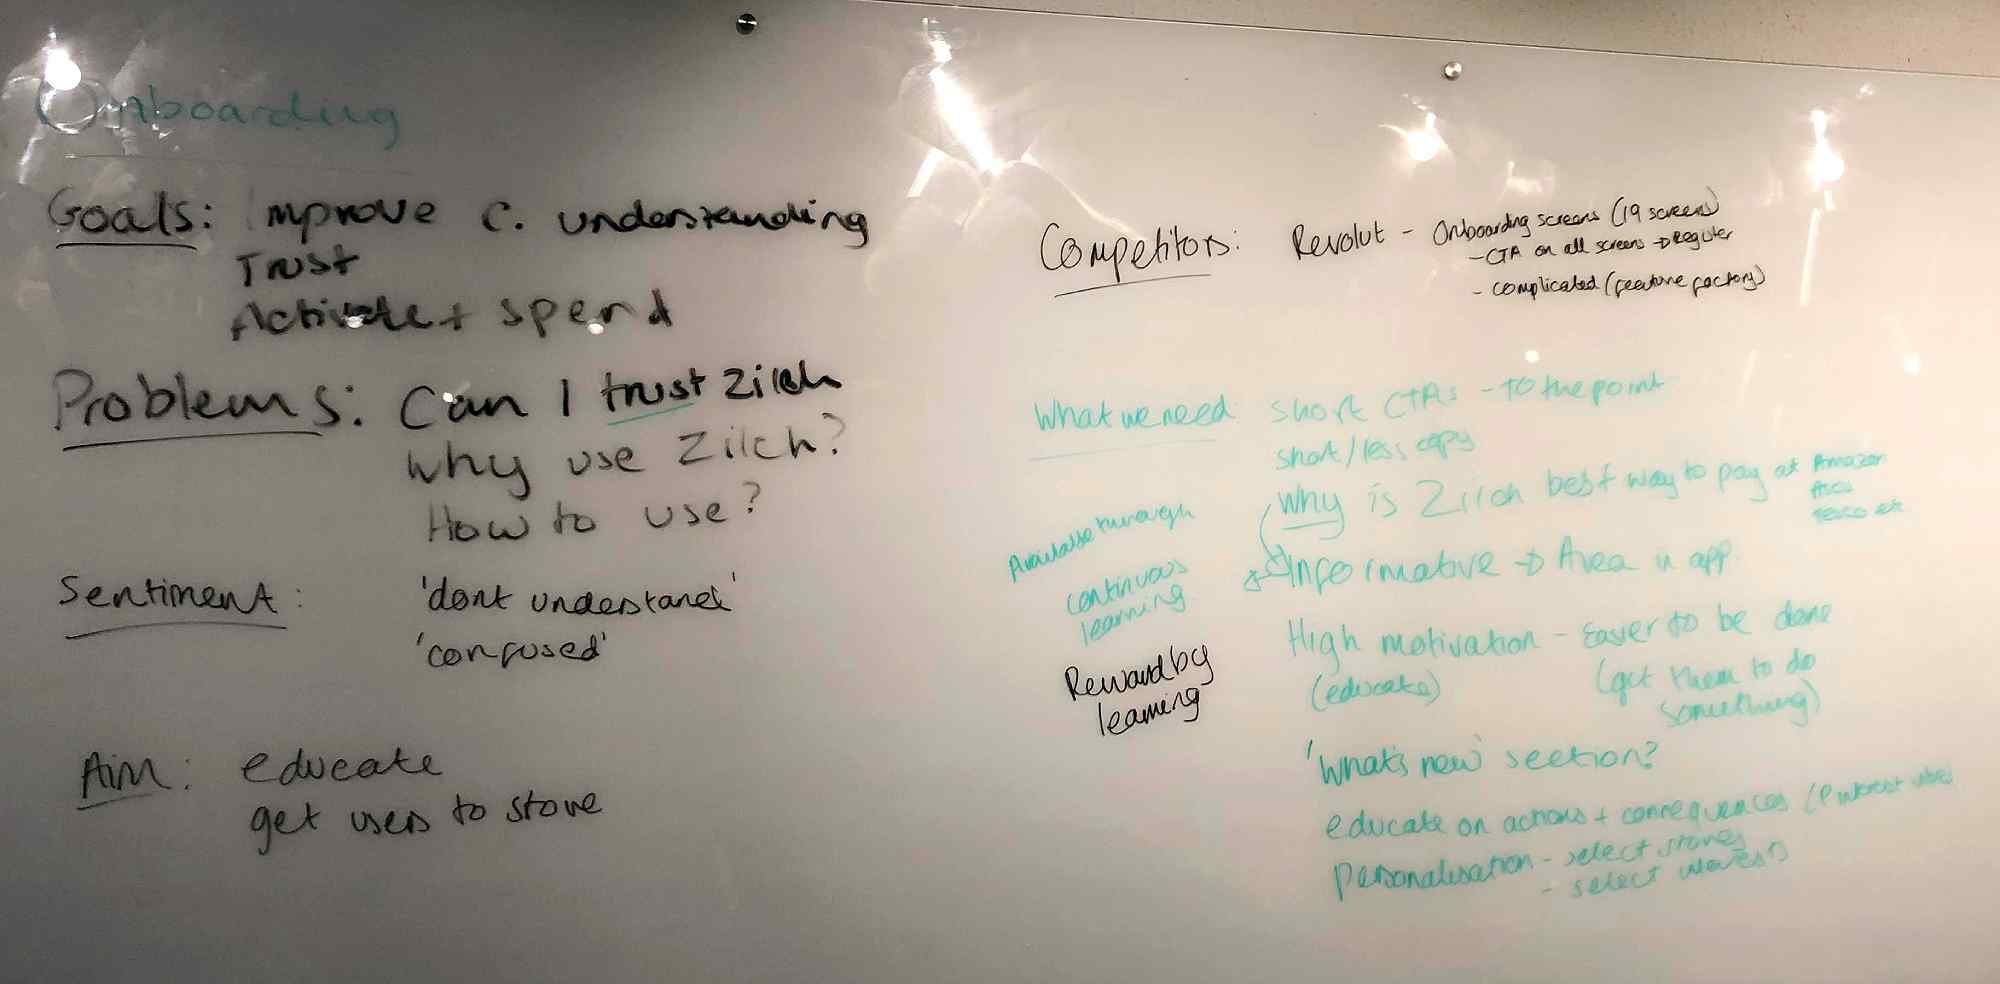 Onboarding
Goals: Improve c. understanding
Trust
Activate + spend
Problems: Can I trust Zilch
Why use Zilch?
How to use?
Sentiment: 'dont understand'
'confused'
Aim: educate
get users to store
Competitors: Revolut - Onboarding screens (19 screens)
- CTA on all screens → Register
- complicated (feature factory)
What we need: short CTAs - to the point
short/less copy
Why is Zilch best way to pay at Amazon
Asos
Tesco etc
Informative → Area in app
Available through
continuous
learning
Reward by
learning
High motivation - easier to be done
(educate) (get them to do
something)
'What's new' section?
educate on actions + consequences (
Personalisation - select stores
- select